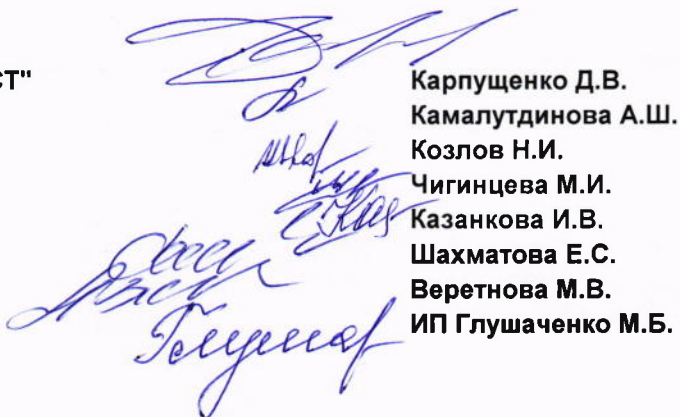 СТ"
Карпущенко Д.В.
Камалутдинова А.Ш.
Козлов Н.И.
Чигинцева М.И.
Казанкова И.В.
Шахматова Е.С.
Веретнова М.В.
ИП Глушаченко М.Б.